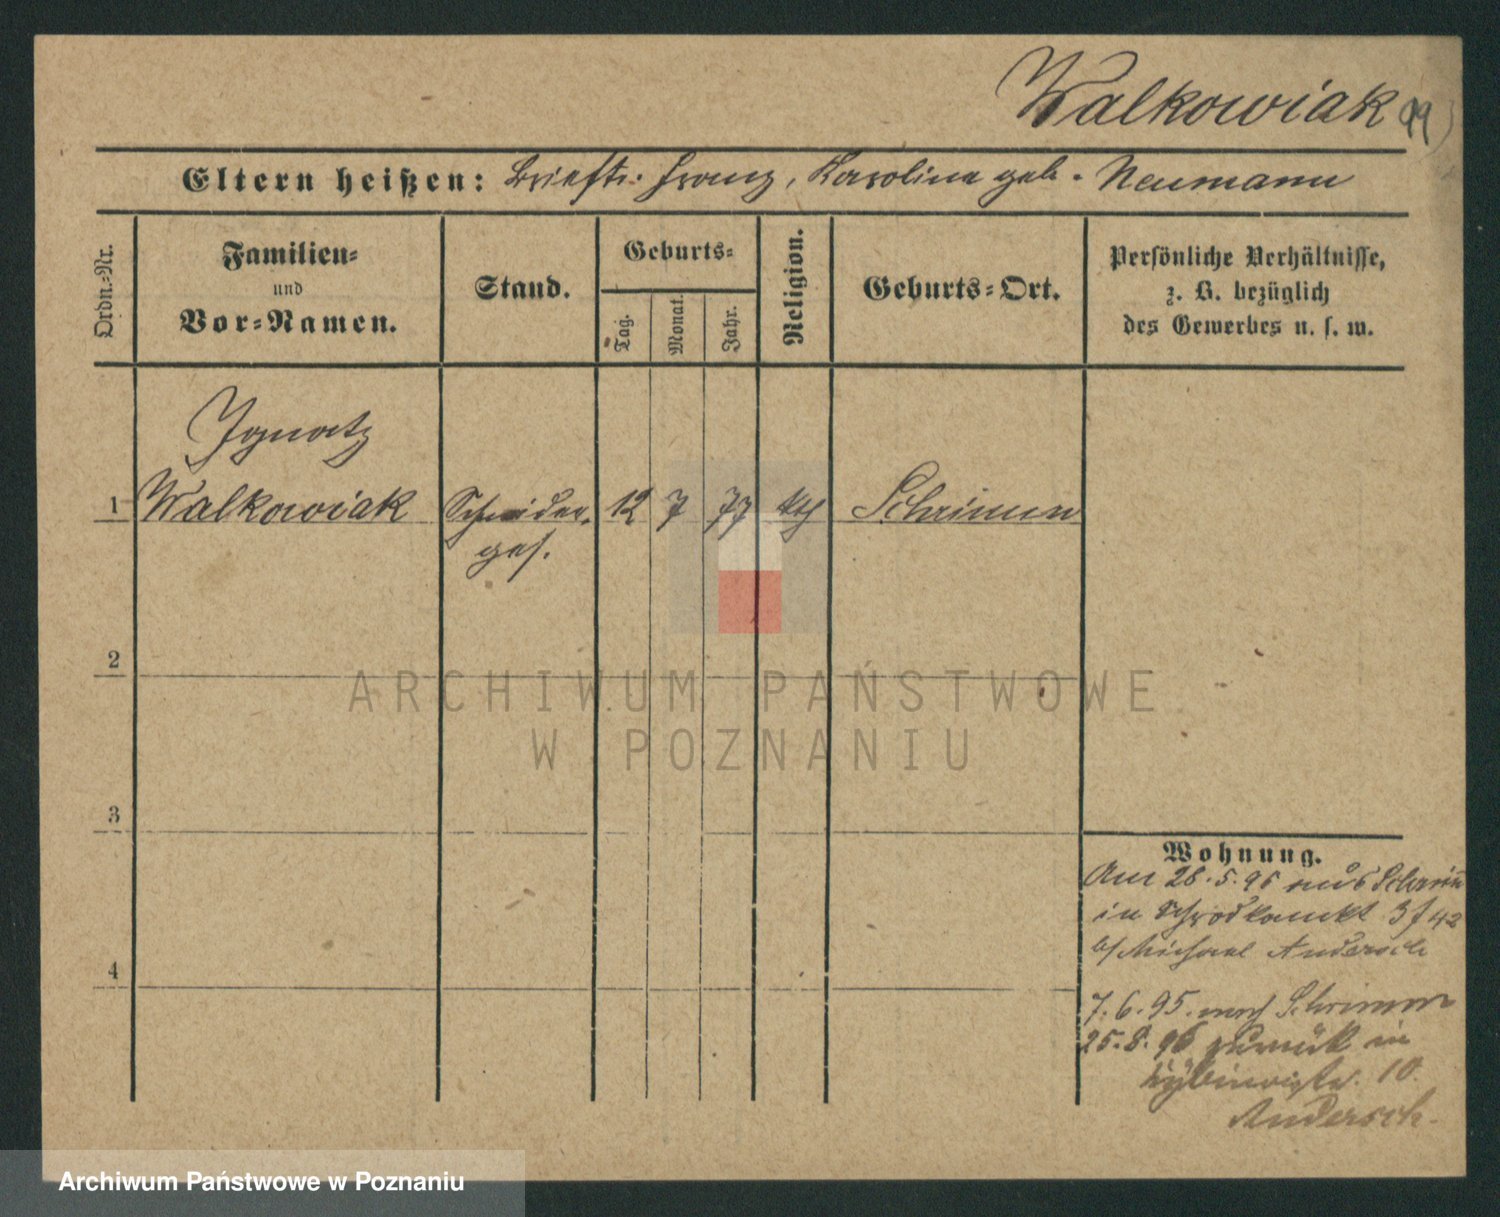 Walkowiak
Eltern heißen: Brieftr. Franz, Karolina geb. Neumann
Ordn.-Nr.
Familien-
und
Vor-Namen.
Stand.
Geburts-
Tag.
Monat.
Jahr.
Religion.
Geburts-Ort.
Persönliche Verhältnisse,
z. B. bezüglich
des Gewerbes u. s. w.
Ignatz
1 Walkowiak Schneider- 12 7 77 kth Schrimm
ges.
2
3
4
Wohnung.
Am 28.5.95 aus Schrim̄
in Schrodkamkt 3 f 42
b/ Michael Andersch
7.6.95. nach Schrimm
25.8.96 zurück in
10.
Andersch.
ARCHIWUM PAŃSTWOWE
W POZNANIU
Archiwum Państwowe w Poznaniu